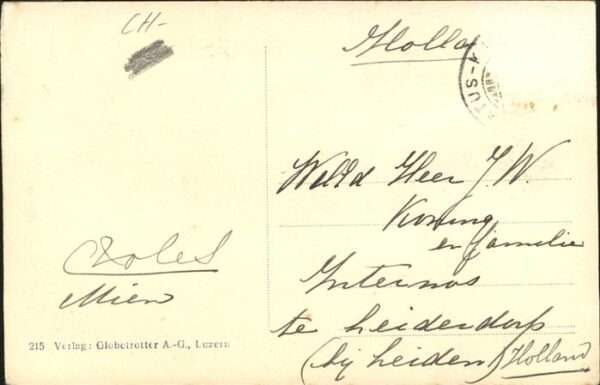 CH-
Holla
TUS-
WelEd Heer J. W.
Koning
en familie
Internos
te Leiderdorp
(bij Leiden) Holland
Mien
215 Verlag: Globetrotter A.-G., Luzern